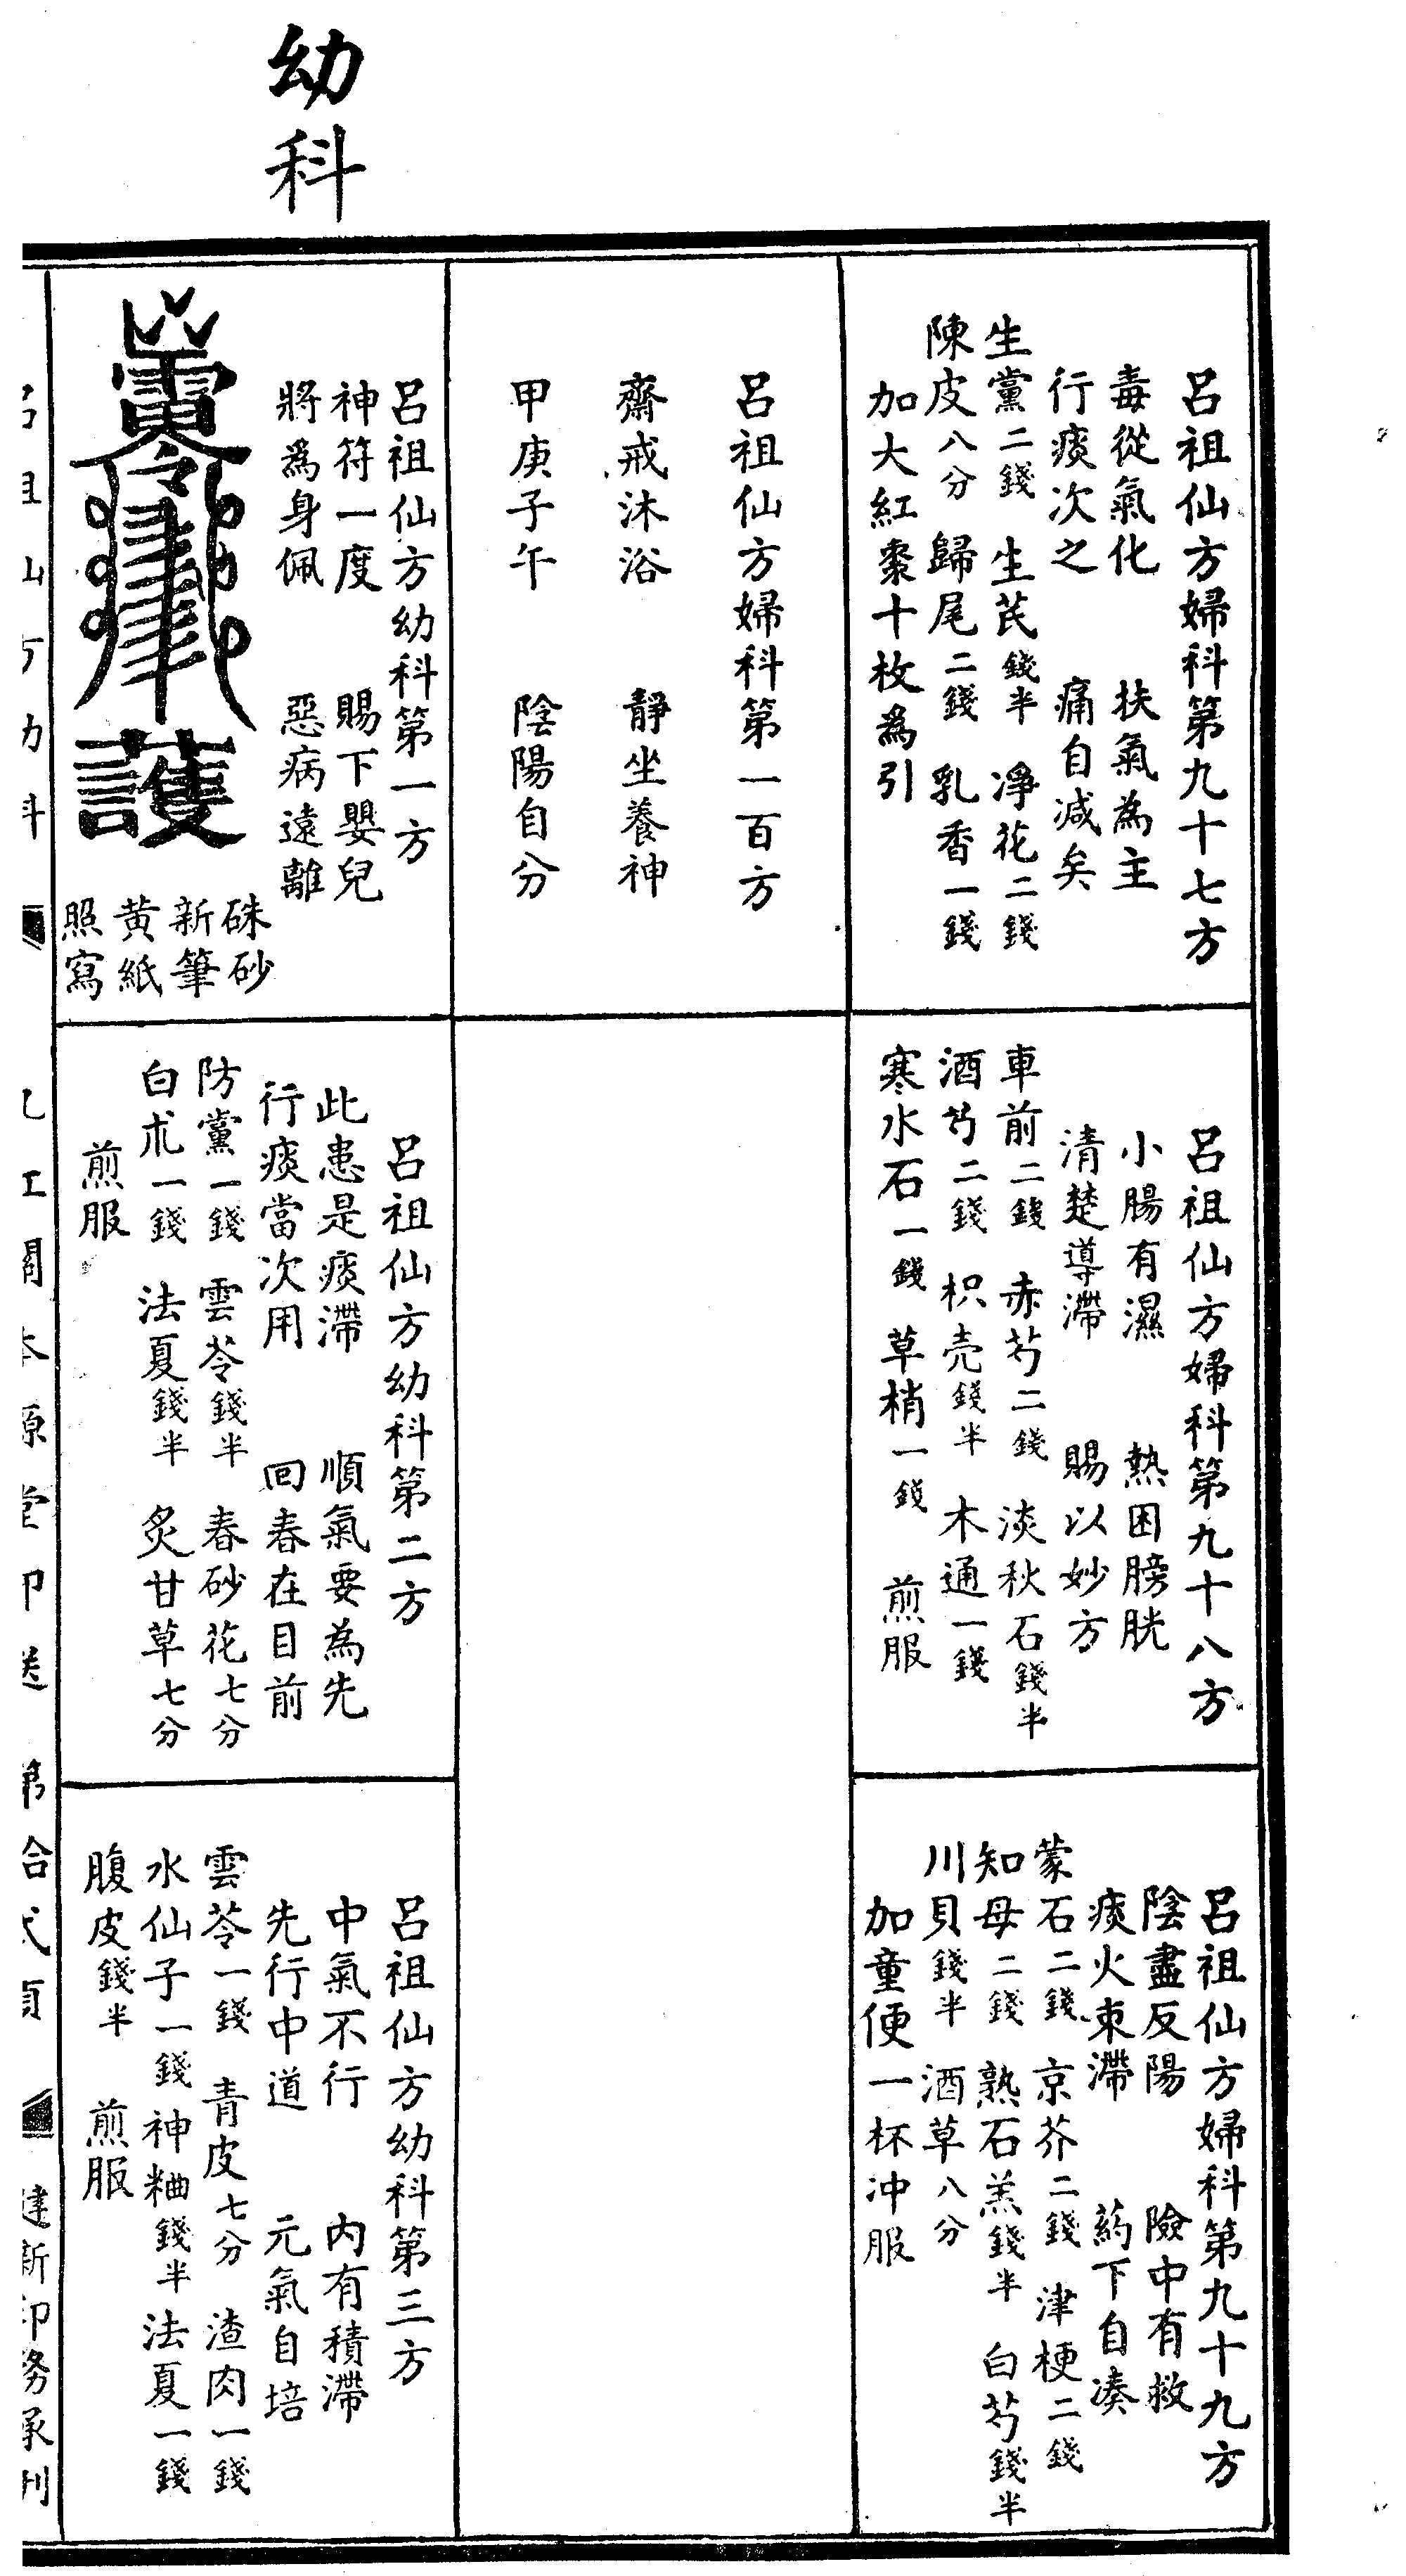 幼科
呂祖仙方婦科第九十七方
毒從氣化　扶氣為主
行痰次之　痛自減矣
生黨二錢　生芪錢半　淨花二錢
陳皮八分　歸尾二錢　乳香一錢
加大紅棗十枚爲引
呂祖仙方婦科第九十八方
小腸有濕　熱困膀胱
清楚導滯　賜以妙方
車前二錢　赤芍二錢　淡秋石錢半
酒芍二錢　枳壳錢半　木通一錢
寒水石一錢　草梢一錢　煎服
呂祖仙方婦科第九十九方
陰盡反陽　險中有救
痰火束滯　葯下自凑
蒙石二錢　京芥二錢　津梗二錢
知母二錢　熟石羔錢半　白芍錢半
川貝錢半　酒草八分
加童便一杯冲服
呂祖仙方婦科第一百方
齋戒沐浴　靜坐養神
甲庚子午　陰陽自分
呂祖仙方幼科第一方
神符一度　賜下嬰兒
將爲身佩　惡病遠離
護
硃砂
新筆
黄紙
照寫
呂祖仙方幼科第二方
此患是痰滯　順氣要為先
行痰當次用　回春在目前
防黨一錢　雲苓錢半　春砂花七分
白朮一錢　法夏錢半　炙甘草七分
煎服
呂祖仙方幼科第三方
中氣不行　內有積滯
先行中道　元氣自培
雲苓一錢　青皮七分　渣肉一錢
水仙子一錢　神粬錢半　法夏一錢
腹皮錢半　煎服
呂祖仙方幼科　本源堂印送　第拾式頁　建新印務承刊